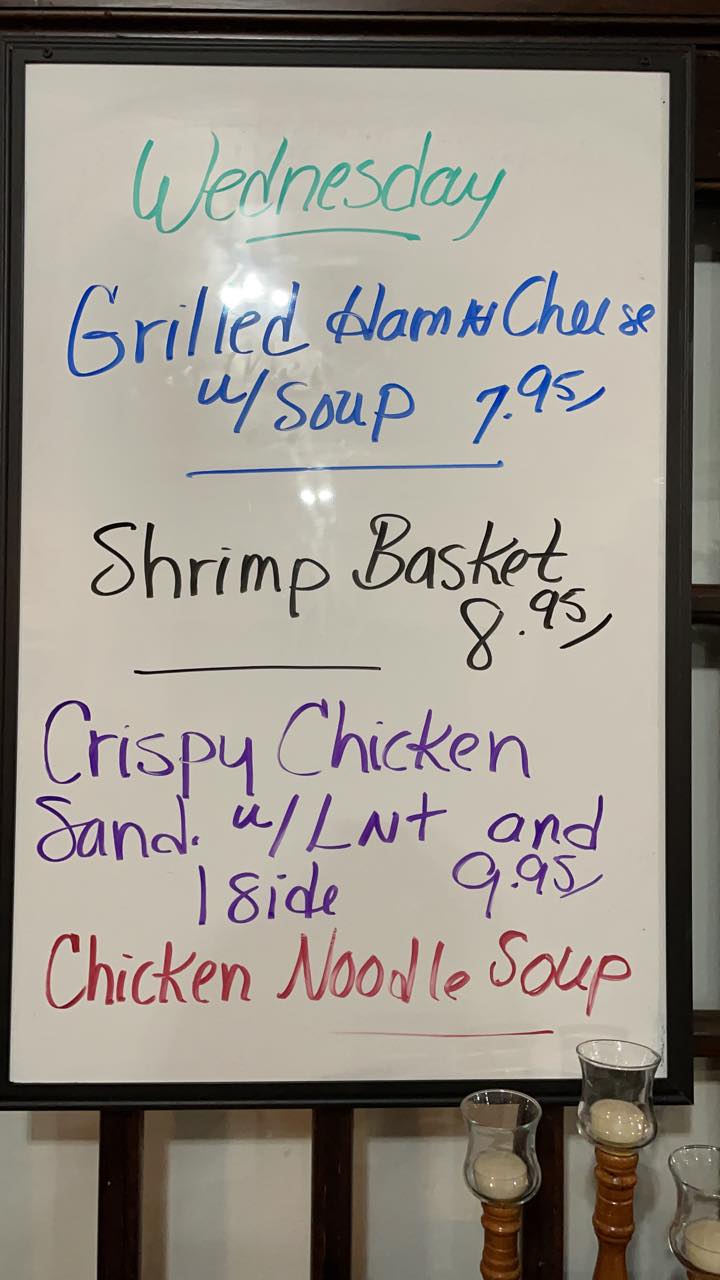 Wednesday
Grilled Ham N Cheese
w/ Soup 7.95
Shrimp Basket
8.95
Crispy Chicken
Sand. w/ LNT and
1 Side 9.95
Chicken Noodle Soup